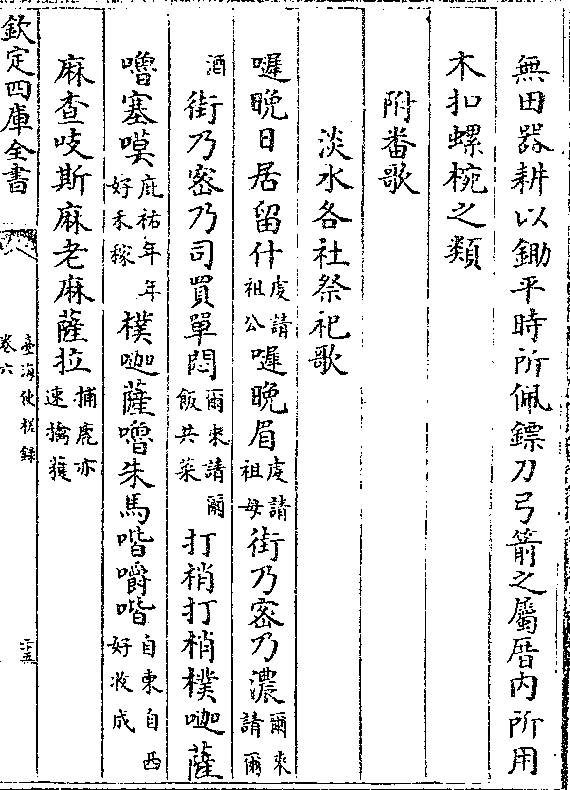 無田器耕以鋤平時所佩鏢刀弓箭之屬厝内所用
木扣螺椀之類
附番歌
淡水各社祭祀歌
𠹌晚日居留什虔請祖公𠹌晚眉虔請祖母街乃密乃濃爾來請爾
酒街乃密乃司買單悶爾來請爾飯共菜打梢打梢樸迦薩
嚕塞嘆庇祐年年好禾稼樸迦薩嚕朱馬喈嚼喈自東自西好收成
麻查吱斯麻老麻薩拉捕鹿亦速擒獲
欽定四庫全書
臺海使槎錄
卷六
二十五